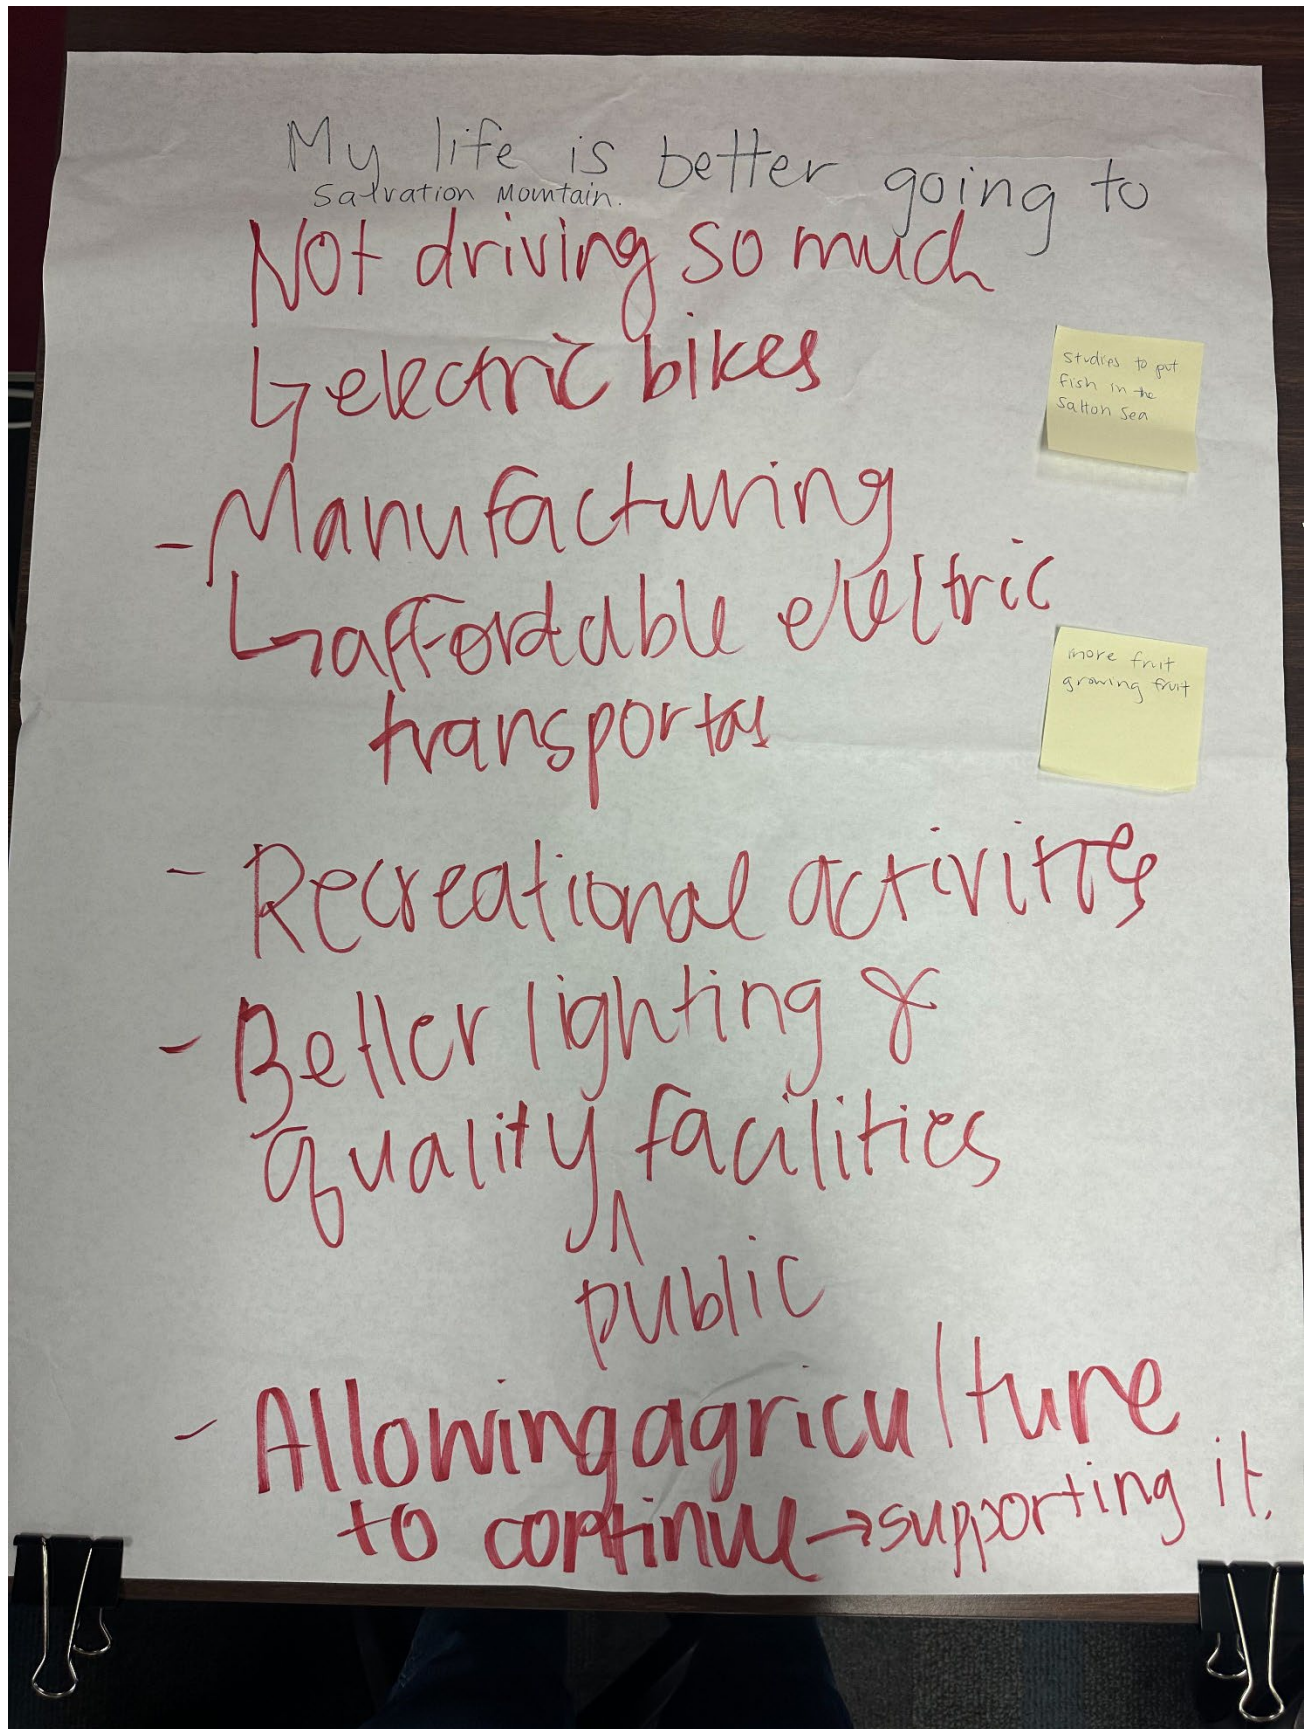 My life is better going to
Salvation Mountain.
Not driving so much
↳ electric bikes
- Manufacturing
↳ affordable electric
transportas
- Recreational activities
- Better lighting &
quality ^ facilities
public
- Allowing agriculture
to continue → supporting it.
studies to put
fish in the
Salton Sea
more fruit
growing fruit